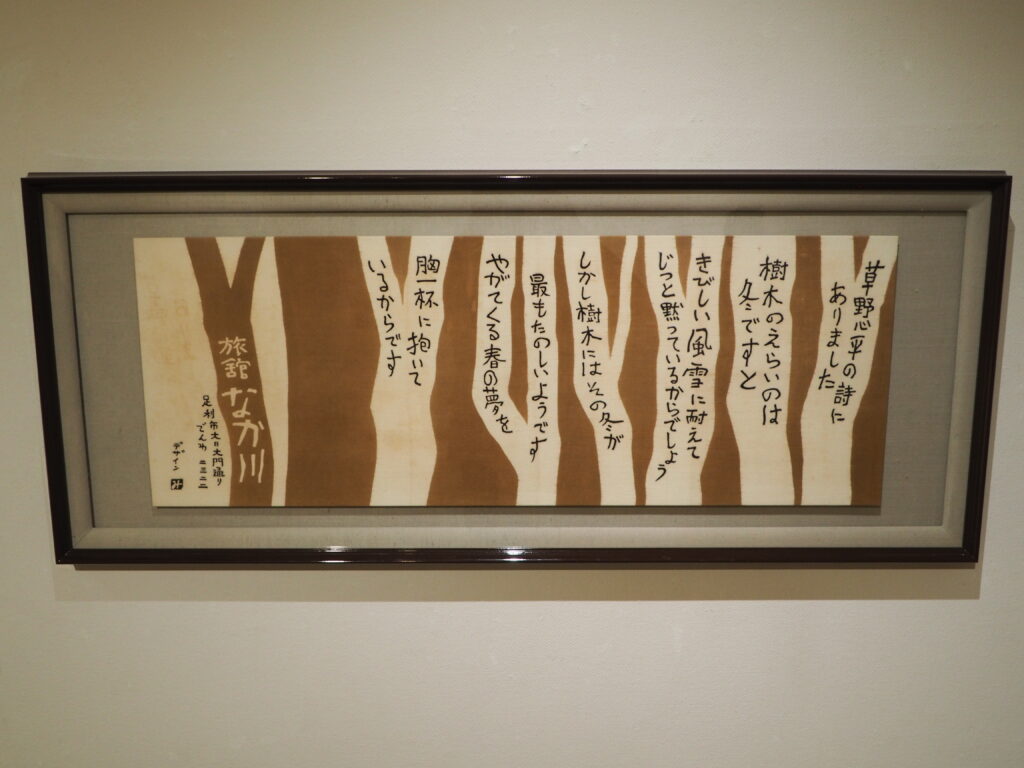 草野心平の詩に
ありました
樹木のえらいのは
冬ですと
きびしい風雪に耐えて
じっと黙っているからでしよう
しかし樹木にはその冬が
最もたのしいようです
やがてくる春の夢を
胸一杯に抱いて
いるからです
旅舘
なか川
足利市大日大門通り
でんわ 二三二二
デザイン